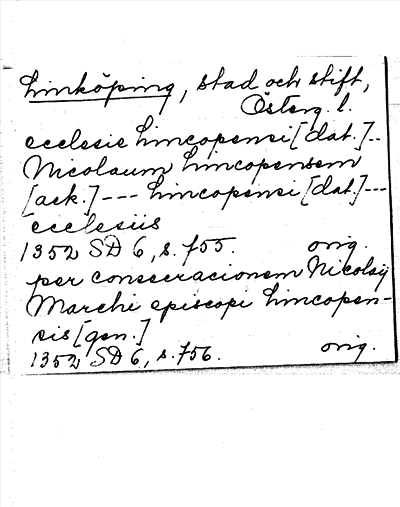 Linköping, stad och stift,
Österg. l.
ecclesie Lincopensi [dat.]--
Nicolaum Lincopensem
[ack.] --- Lincopensi [dat.]---
ecclesiis
1352 SD 6, s. 755. orig.
per consecracionem Nicolaij
Marchi episcopi Lincopen-
sis [gen.]
1352 SD 6, s. 756. orig.